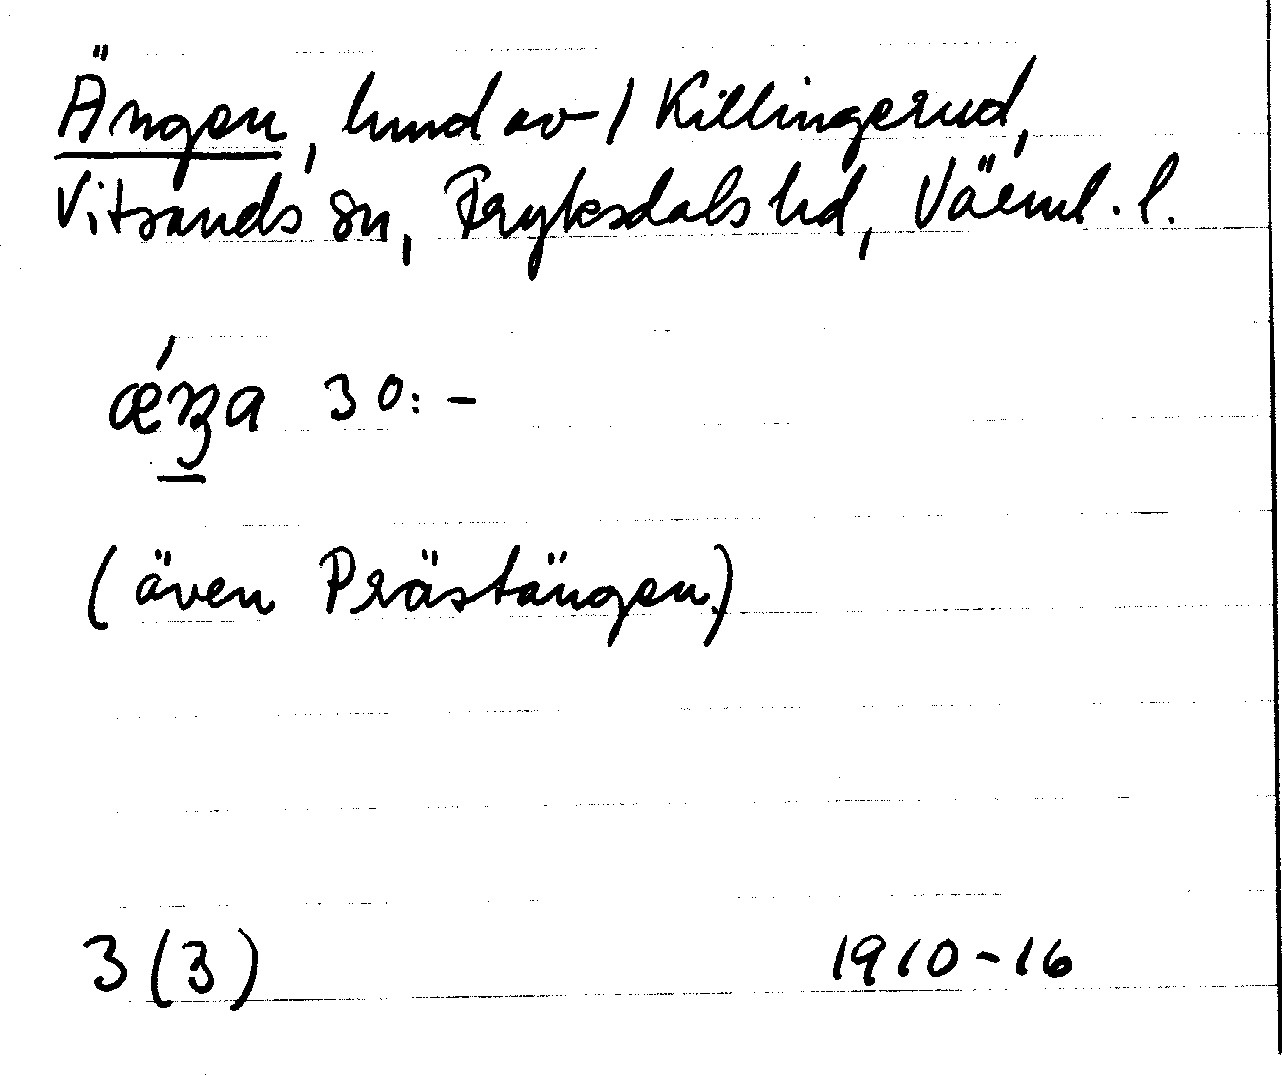 Ängen, hmd av 1 Killingerud,
Vitsands sn, Fryksdals hd, Värml. l.
ǽŋa 30:-
(även Prästängen)
3(3) 1910-16